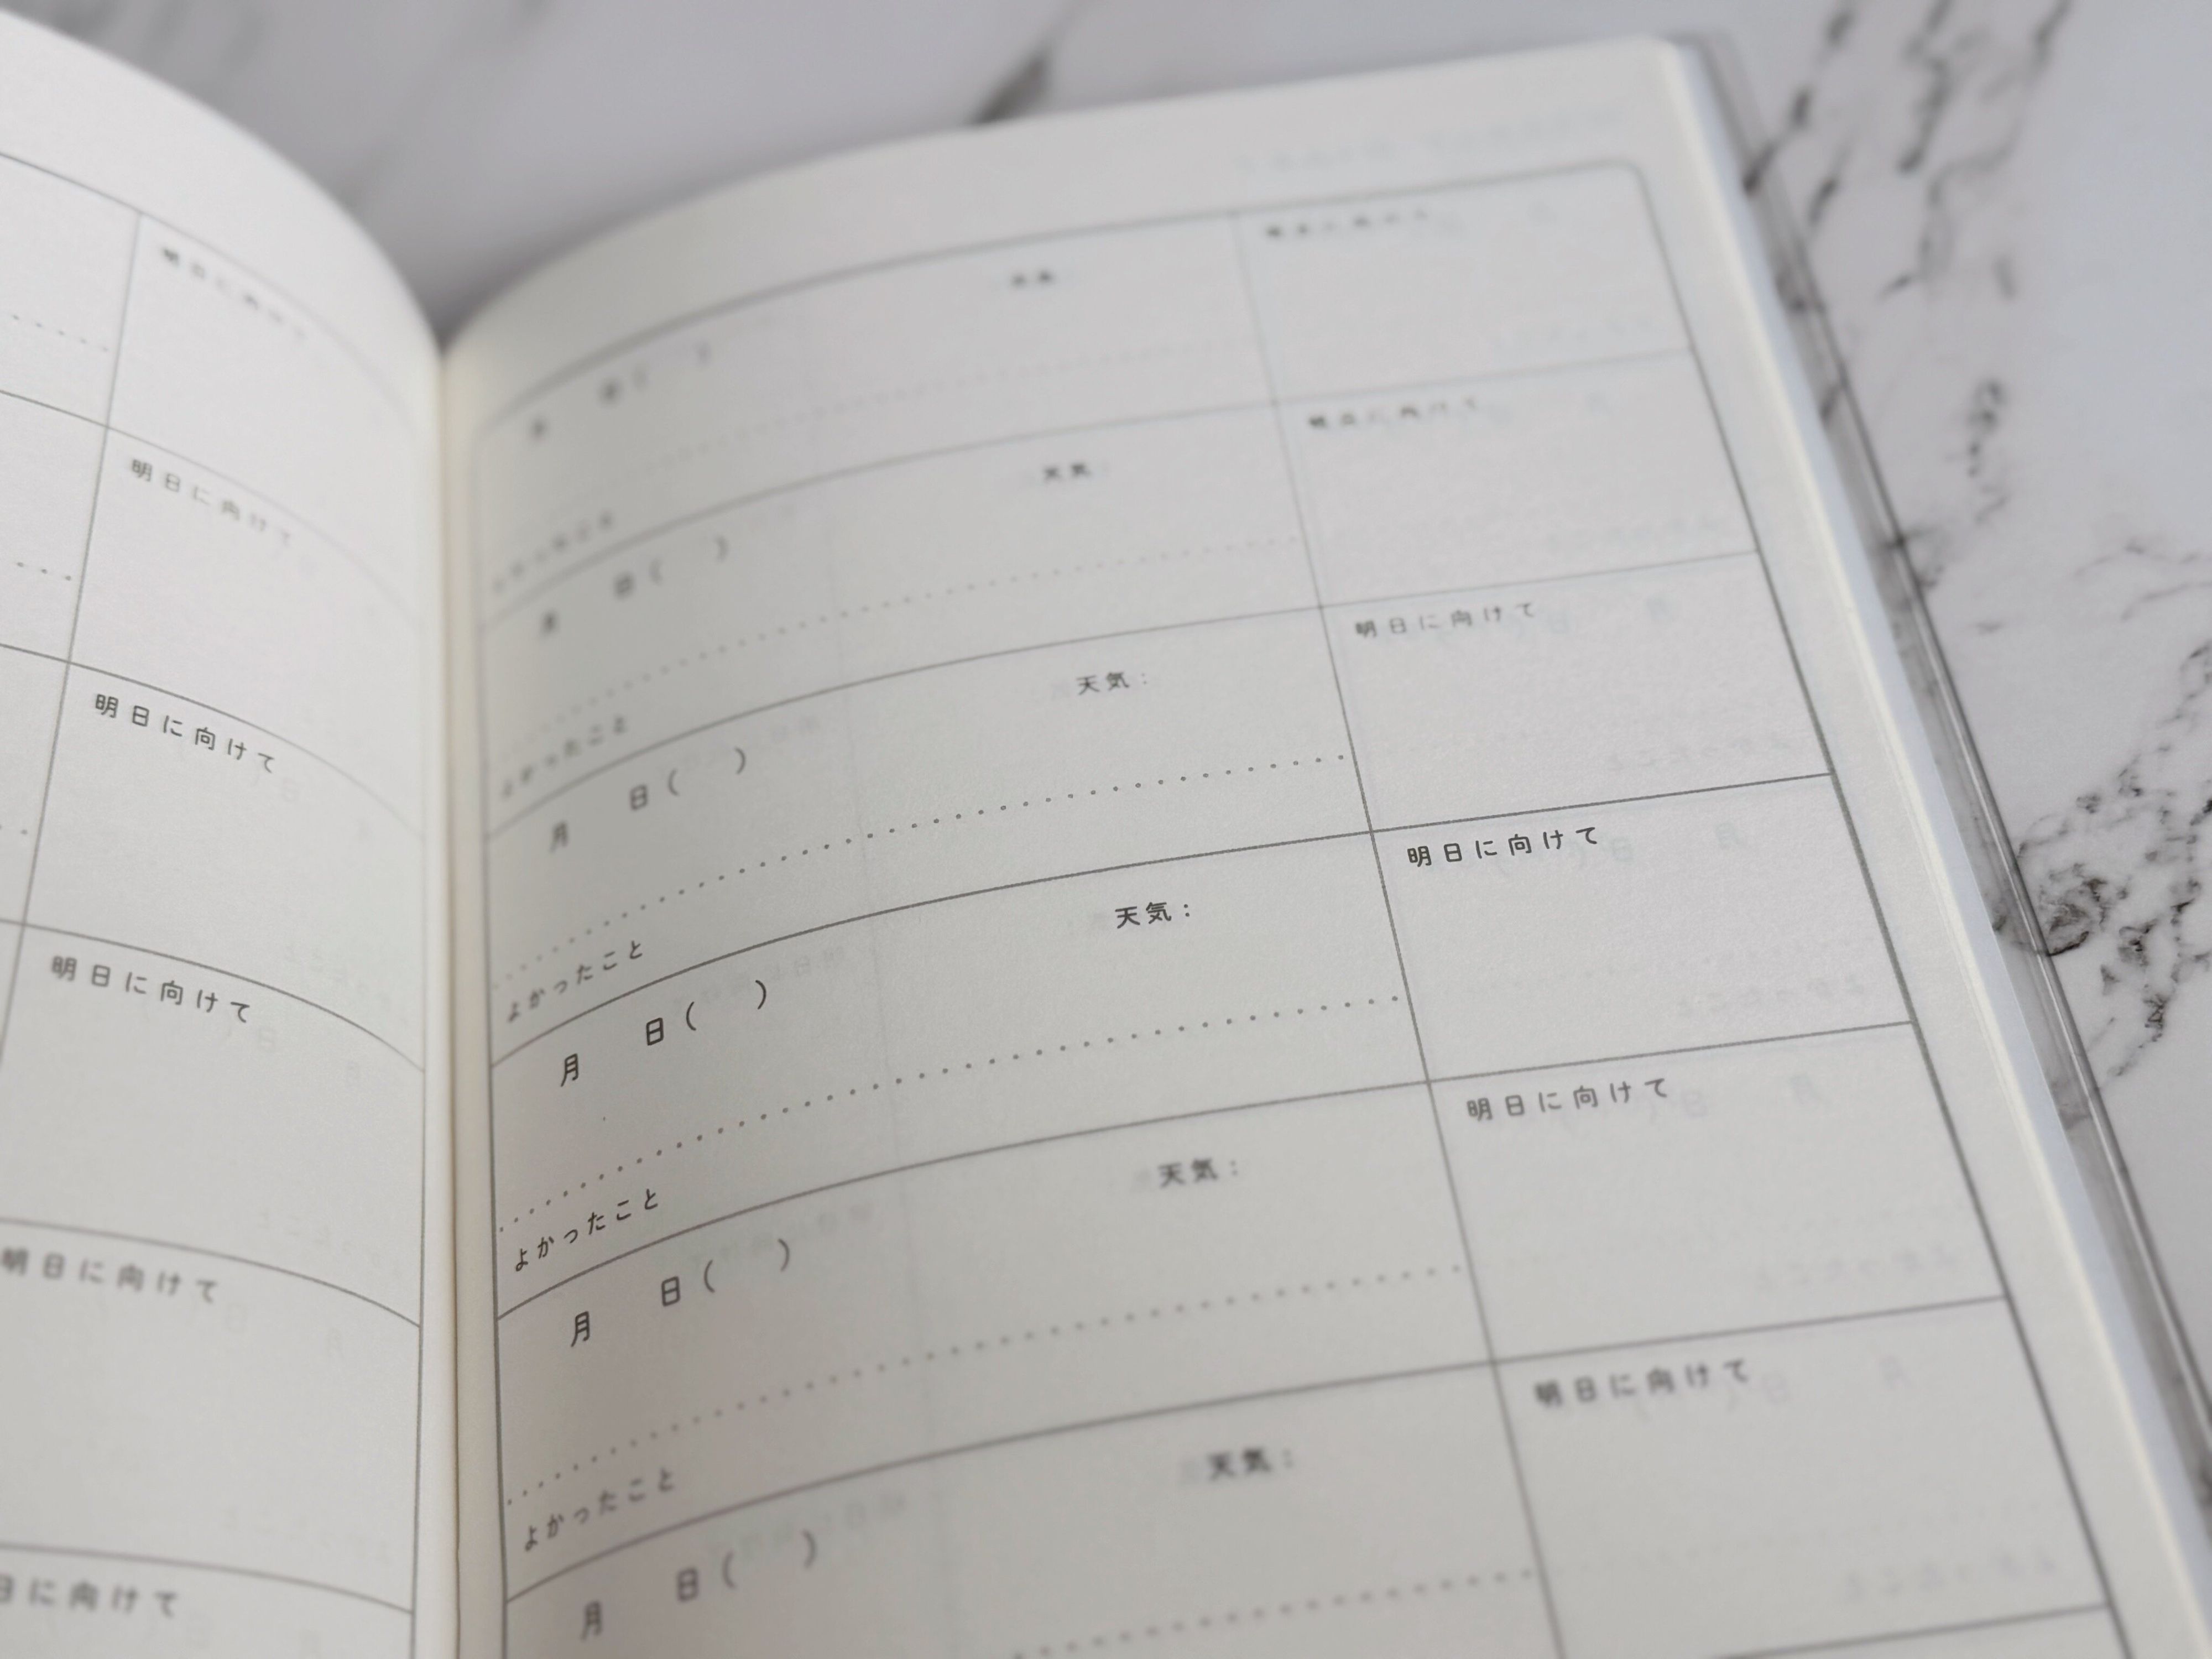 明日に向けて
明日に向けて
明日に向けて
明日に向けて
日に向けて
天気
明日に向けて
月 日( )
天気:
明日に向けて
よかったこと
月 日( )
天気:
明日に向けて
よかったこと
月 日( )
天気:
明日に向けて
よかったこと
月 日( )
天気:
明日に向けて
よかったこと
月 日( )
天気:
明日に向けて
よかったこと
月 日( )